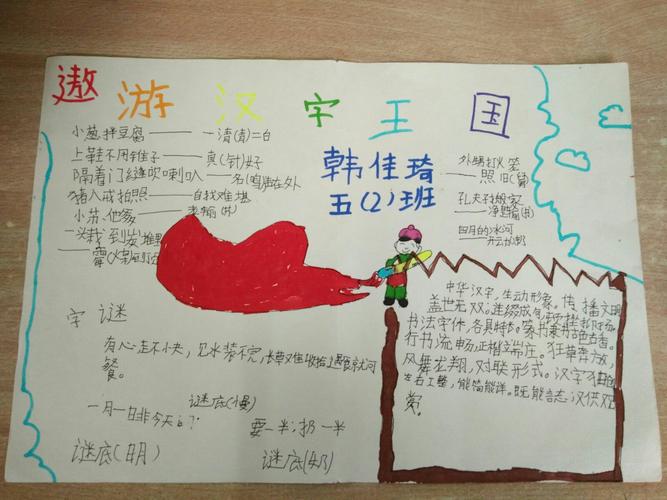 遨游汉字王国
小葱拌豆腐——一清(青)二白
上鞋不用锥子——真(针)好
隔着门缝吹喇叭——名(鸣)声在外
猪八戒拍照——自找难堪
韩佳琦
五(2)班
外甥打灯笼
——照旧(舅)
孔夫子搬家
——净是输(书)
四月的冰河
字谜
有心走不快，见水装不完，
餐。
谜底(慢)
一月一日非今天
谜底(明)
要一半，扔一半
谜底(奶)
中华汉字，生动形象，传播文明
盖世无双。连缀成句，
书法字体，各具特色。
行书流畅，正楷端庄。狂草奔放，
凤舞龙翔，对联形式。汉字独创
左右工整，能简能详。既能言志，又供观
赏。